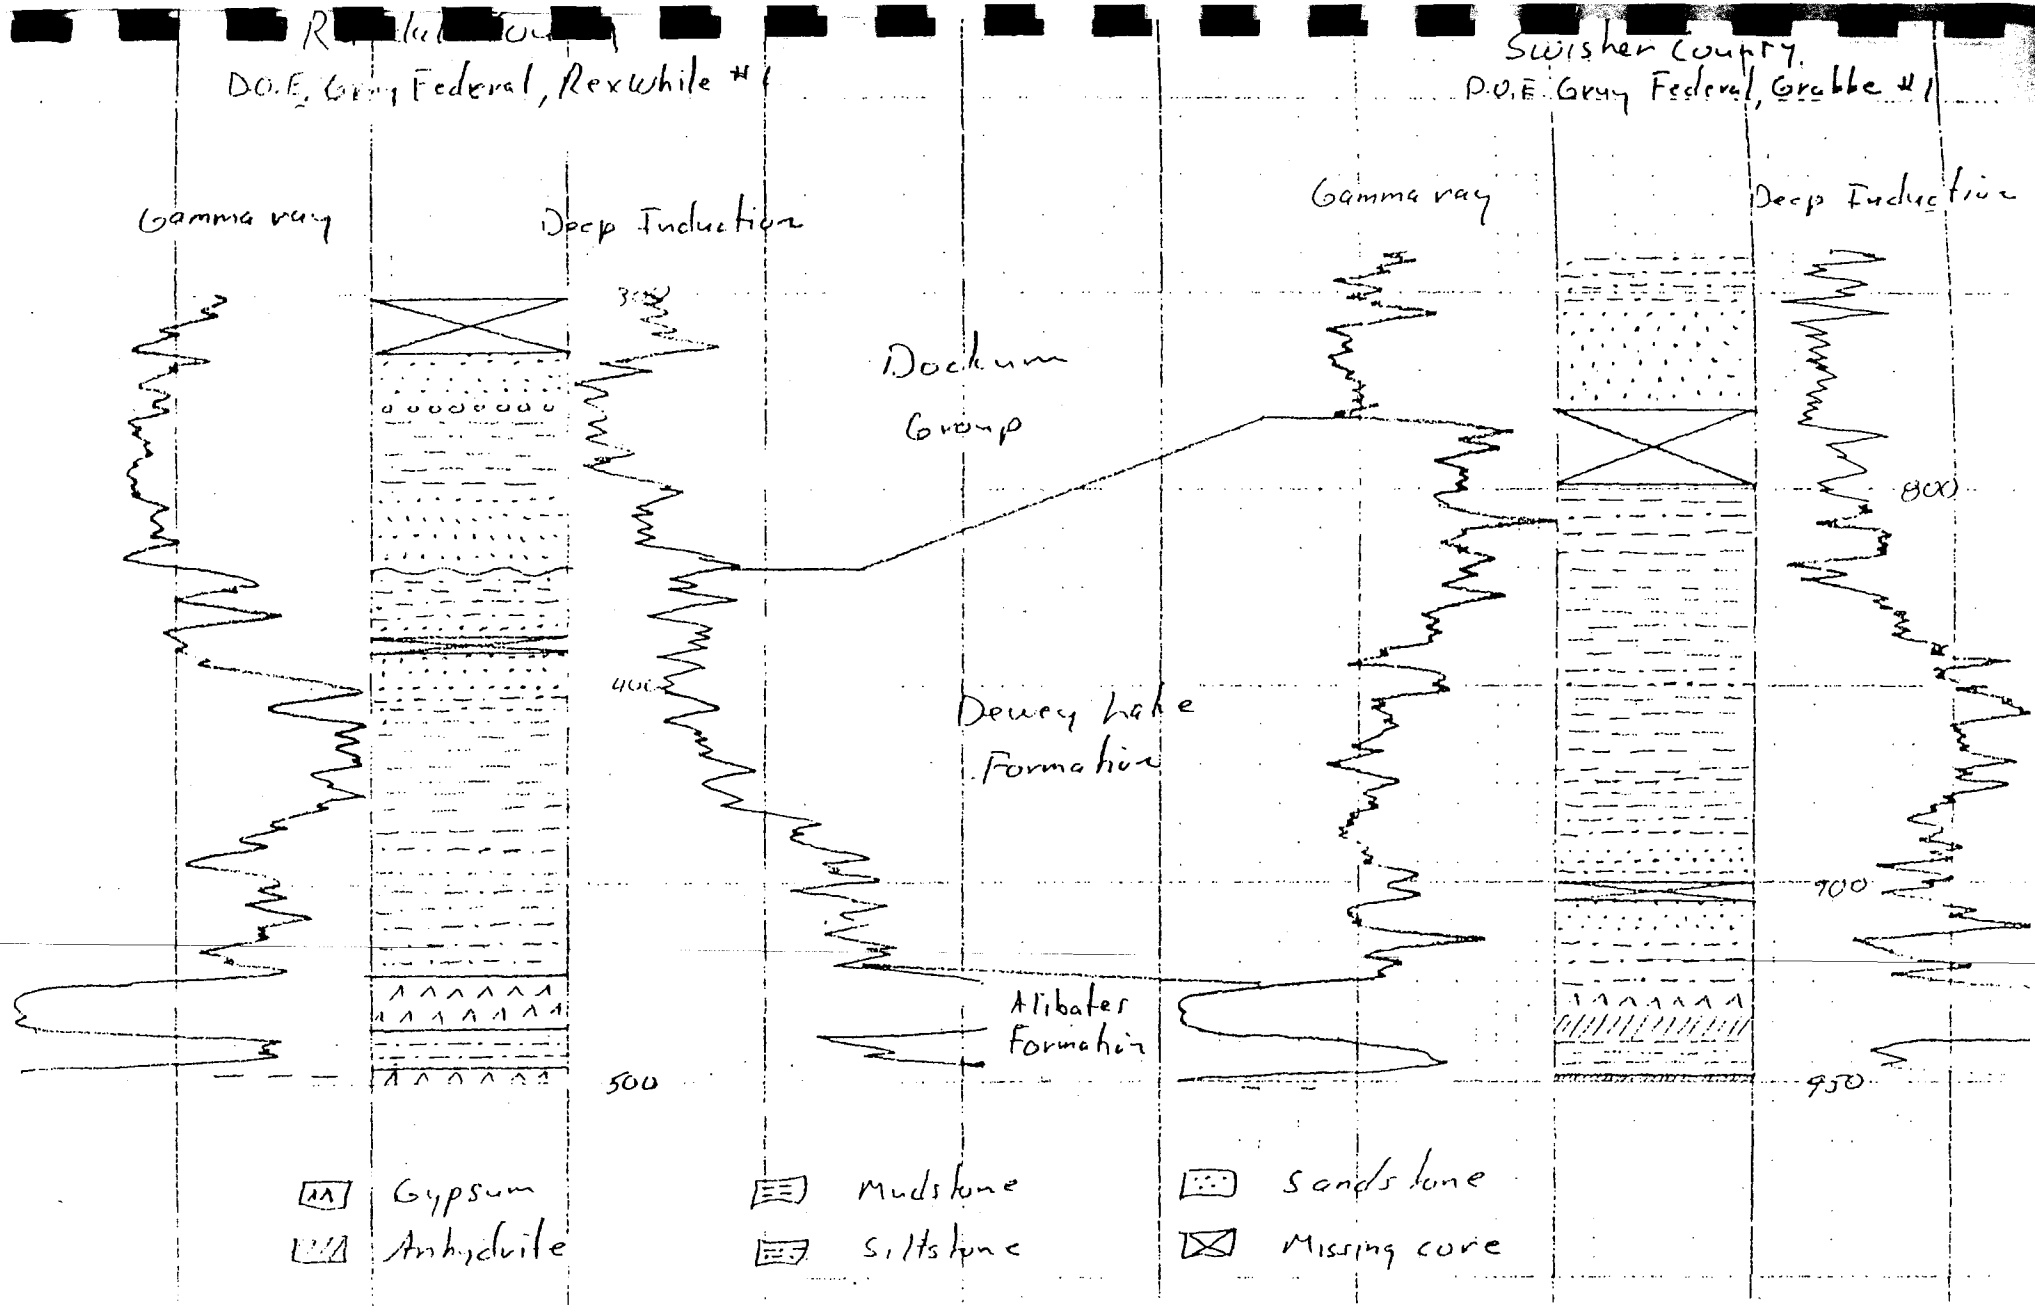 D.O.E. Gruy Federal, Rex White #1
Swisher County.
D.O.E. Gruy Federal, Grabbe #1
Gamma ray
Deep Induction
Gamma ray
Deep Induction
300
Dockum
Group
800
400
Dewey Lake
Formation
900
Alibates
Formation
500
950
Gypsum
Mudstone
Sandstone
Anhydrite
Siltstone
Missing core